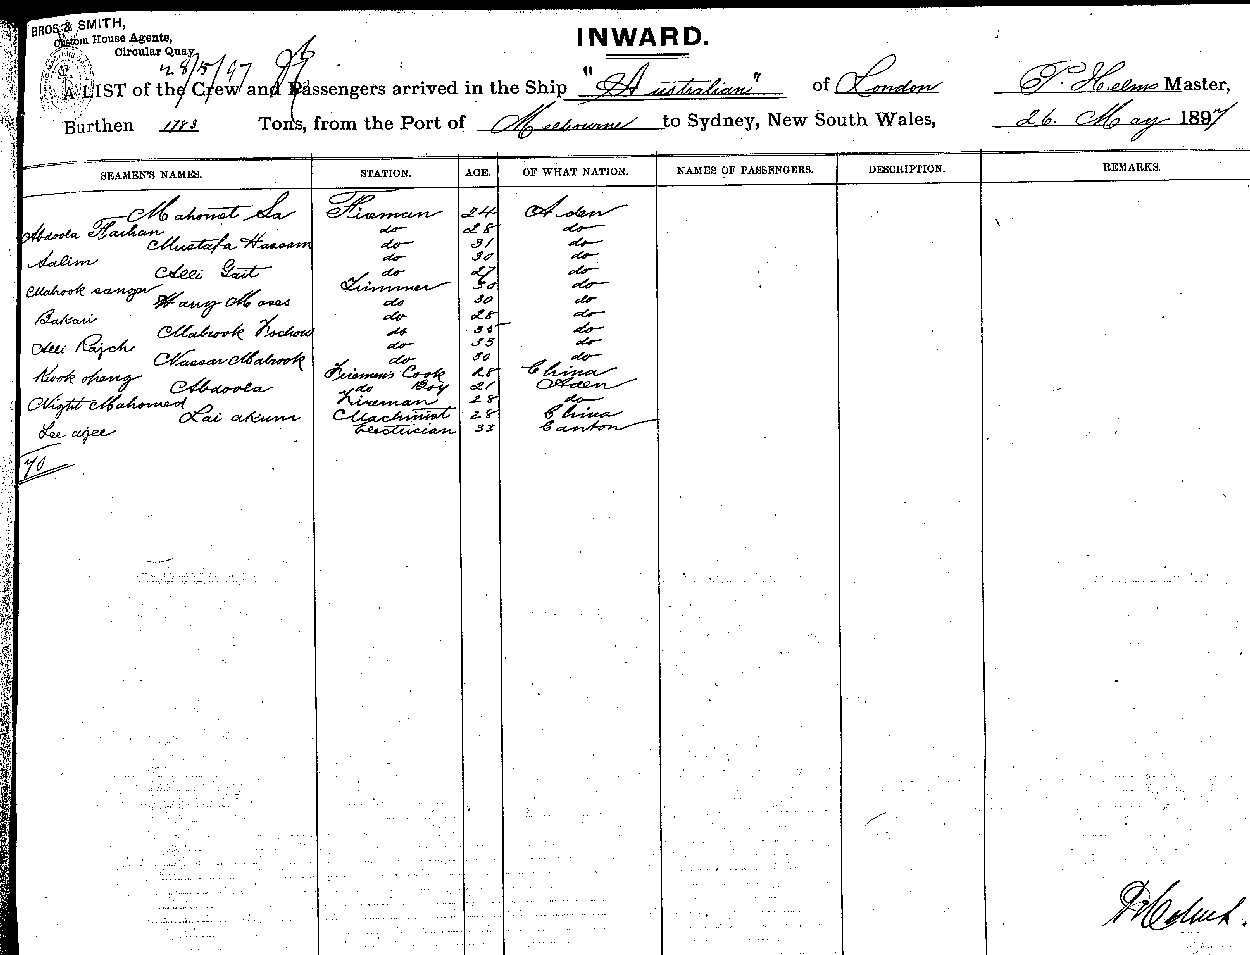 BROS. & SMITH,
Custom House Agents,
Circular Quay.
28/5/97
INWARD.
A LIST of the Crew and Passengers arrived in the Ship "Australian" of London P. Helms Master,
Burthen 1783 Tons, from the Port of Melbourne to Sydney, New South Wales, 26. May 1897
SEAMEN'S NAMES. STATION. AGE. OF WHAT NATION. NAMES OF PASSENGERS. DESCRIPTION. REMARKS.
Mahomet Sa Fireman 24 Aden
Abdoola Farhan do 28 do
Mustafa Hassam do 31 do
Salim do 30 do
Alli Gait do 27 do
Mabrook sangor Trimmer 30 do
Hang Moses do 30 do
Bakari do 28 do
Mabrook do 35 do
Alli Rajch do 35 do
Nassar Mabrook do 30 do
Kook Firemen's Cook 28 China
Abdoola do Boy 21 Aden
Night Mahomed Fireman 28 do
Lai akum Machinist 28 China
Lee ajee Electrician 33 Canton
70